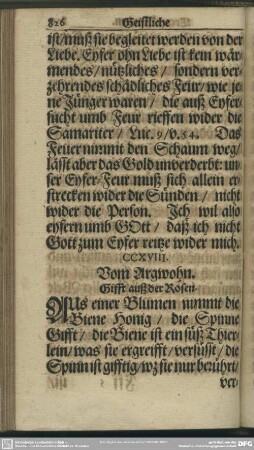 826 Geistliche
ist/ muß sie begleitet werden von der
Liebe. Eyfer ohn Liebe ist kein wär-
mendes/ nützliches/ sondern ver-
zehrendes schädliches Feur/ wie je-
ne Jünger waren/ die auß Eyfer-
sucht umb Feur rieffen wider die
Samariter/ Luc. 9/ v. 54. Das
Feuer nimmt den Schaum weg/
lässt aber das Gold unverderbt: un-
ser Eyfer-Feur muß sich allein er-
strecken wider die Sünden/ nicht
wider die Person. Ich wil also
eyfern umb GOtt/ daß ich nicht
Gott zum Eyfer reitze wider mich.
CCXVIII.
Vom Argwohn.
Gifft auß der Rosen
AUs einer Blumen nimmt die
Biene Honig/ die Spinne
Gifft/ die Biene ist ein süß Thier-
lein/ was sie ergreifft/ versüsst/ die
Spinn ist gifftig/ wz sie nur berührt/
ver-